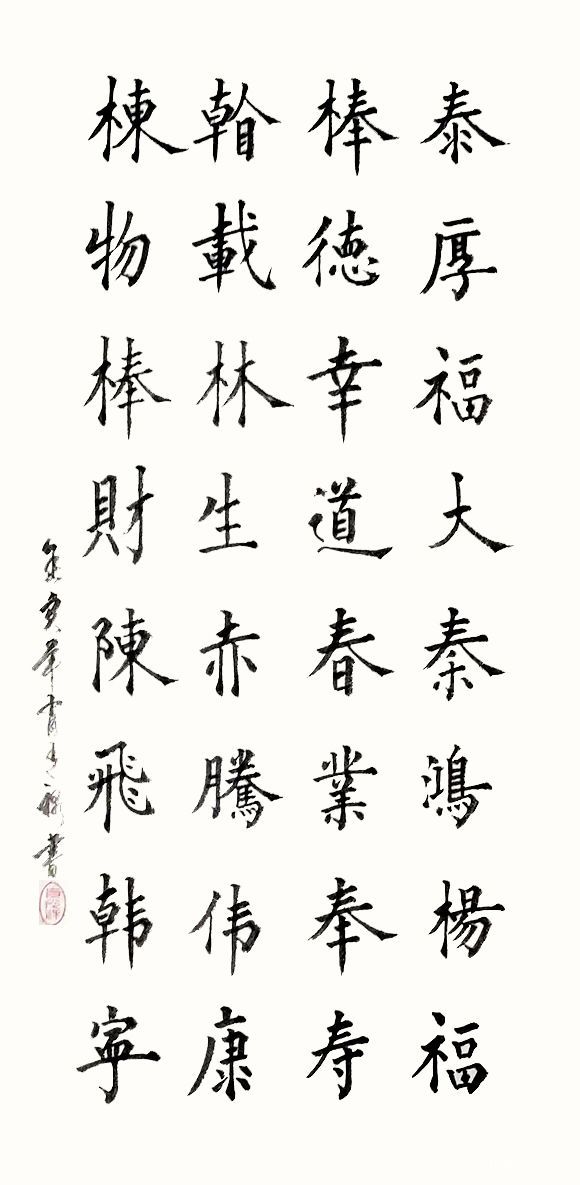 泰厚福大秦鴻楊福
棒德幸道春業奉寿
載林生赤騰伟康
棟物棒財陳飛韩寧
亥年肖書